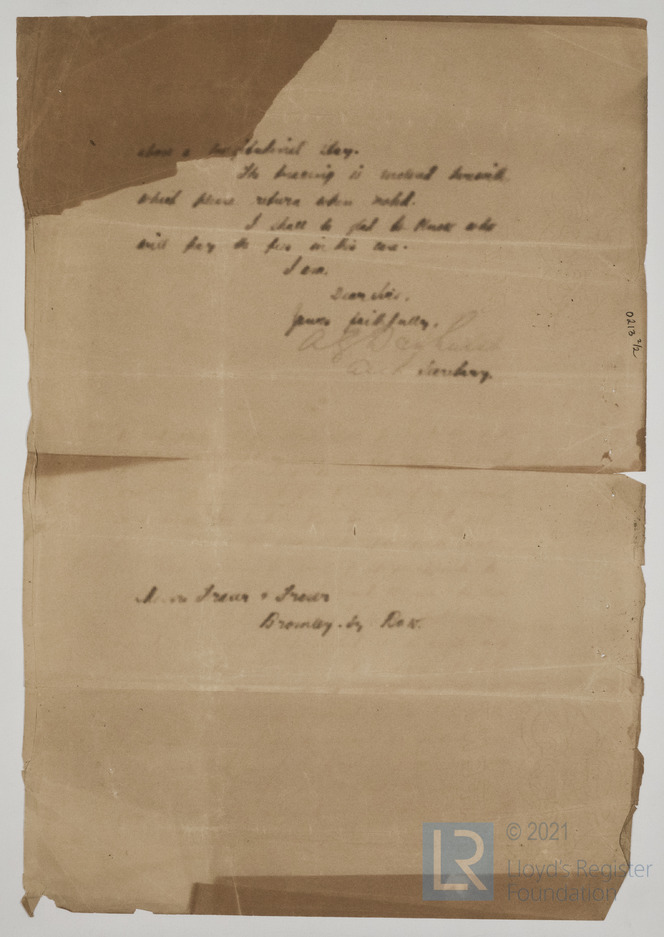 above a longitudinal stay.
The tracing is enclosed herewith
which please return when noted.
I shall be glad to know who
will pay the fees in this case.
I am,
Dear Sirs,
yours faithfully,
Secretary.
0213 2/2
Trewr & Trewr
Bromley-by Bow.
LR
© 2021
Lloyd's Register
Foundation